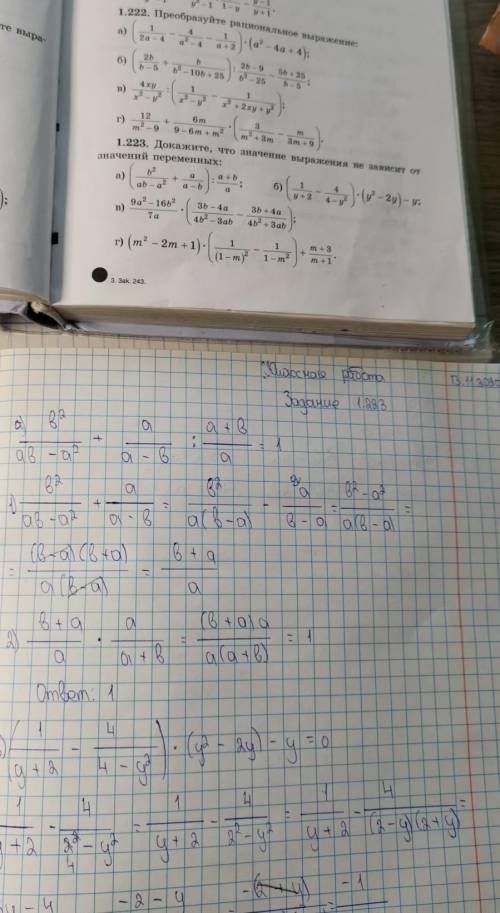 те выра-
1.222. Преобразуйте рациональное выражение:
а) (1/(2a − 4) − 4/(a² − 4) − 1/(a + 2)) · (a² − 4a + 4);
б) (2b/(b − 5) + b/(b² − 10b + 25)) : (2b − 9)/(b² − 25) − (5b + 25)/(b − 5);
в) 4xy/(x² − y²) : (1/(x² − y²) − 1/(x² + 2xy + y²));
г) 12/(m² − 9) + 6m/(9 − 6m + m²) · (3/(m² + 3m) − m/(3m + 9)).
1.223. Докажите, что значение выражения не зависит от
значений переменных:
а) (b²/(ab − a²) + a/(a − b)) : (a + b)/a; б) (1/(y + 2) − 4/(4 − y²)) · (y² − 2y) − y;
в) (9a² − 16b²)/7a · ((3b − 4a)/(4b² − 3ab) − (3b + 4a)/(4b² + 3ab));
г) (m² − 2m + 1) · (1/(1 − m)² − 1/(1 − m²)) + (m + 3)/(m + 1).
3. Зак. 243.
Классная работа
Задание 1.223
а) b²/(ab − a²) + a/(a − b) : (a + b)/a = 1
1) b²/(ab − a²) + a/(a − b) = b²/(a(b − a)) − a/(b − a) = (b² − a²)/(a(b − a)) =
= (b − a)(b + a)/(a(b − a)) = (b + a)/a
2) (b + a)/a · a/(a + b) = (b + a)a/(a(a + b)) = 1
Ответ: 1
(1/(y + 2) − 4/(4 − y²)) · (y² − 2y) − y = 0
1/(y + 2) − 4/(2² − y²) = 1/(y + 2) − 4/(2² − y²) = 1/(y + 2) − 4/((2 − y)(2 + y)) =
− 2 − y −(2 + y) = −1